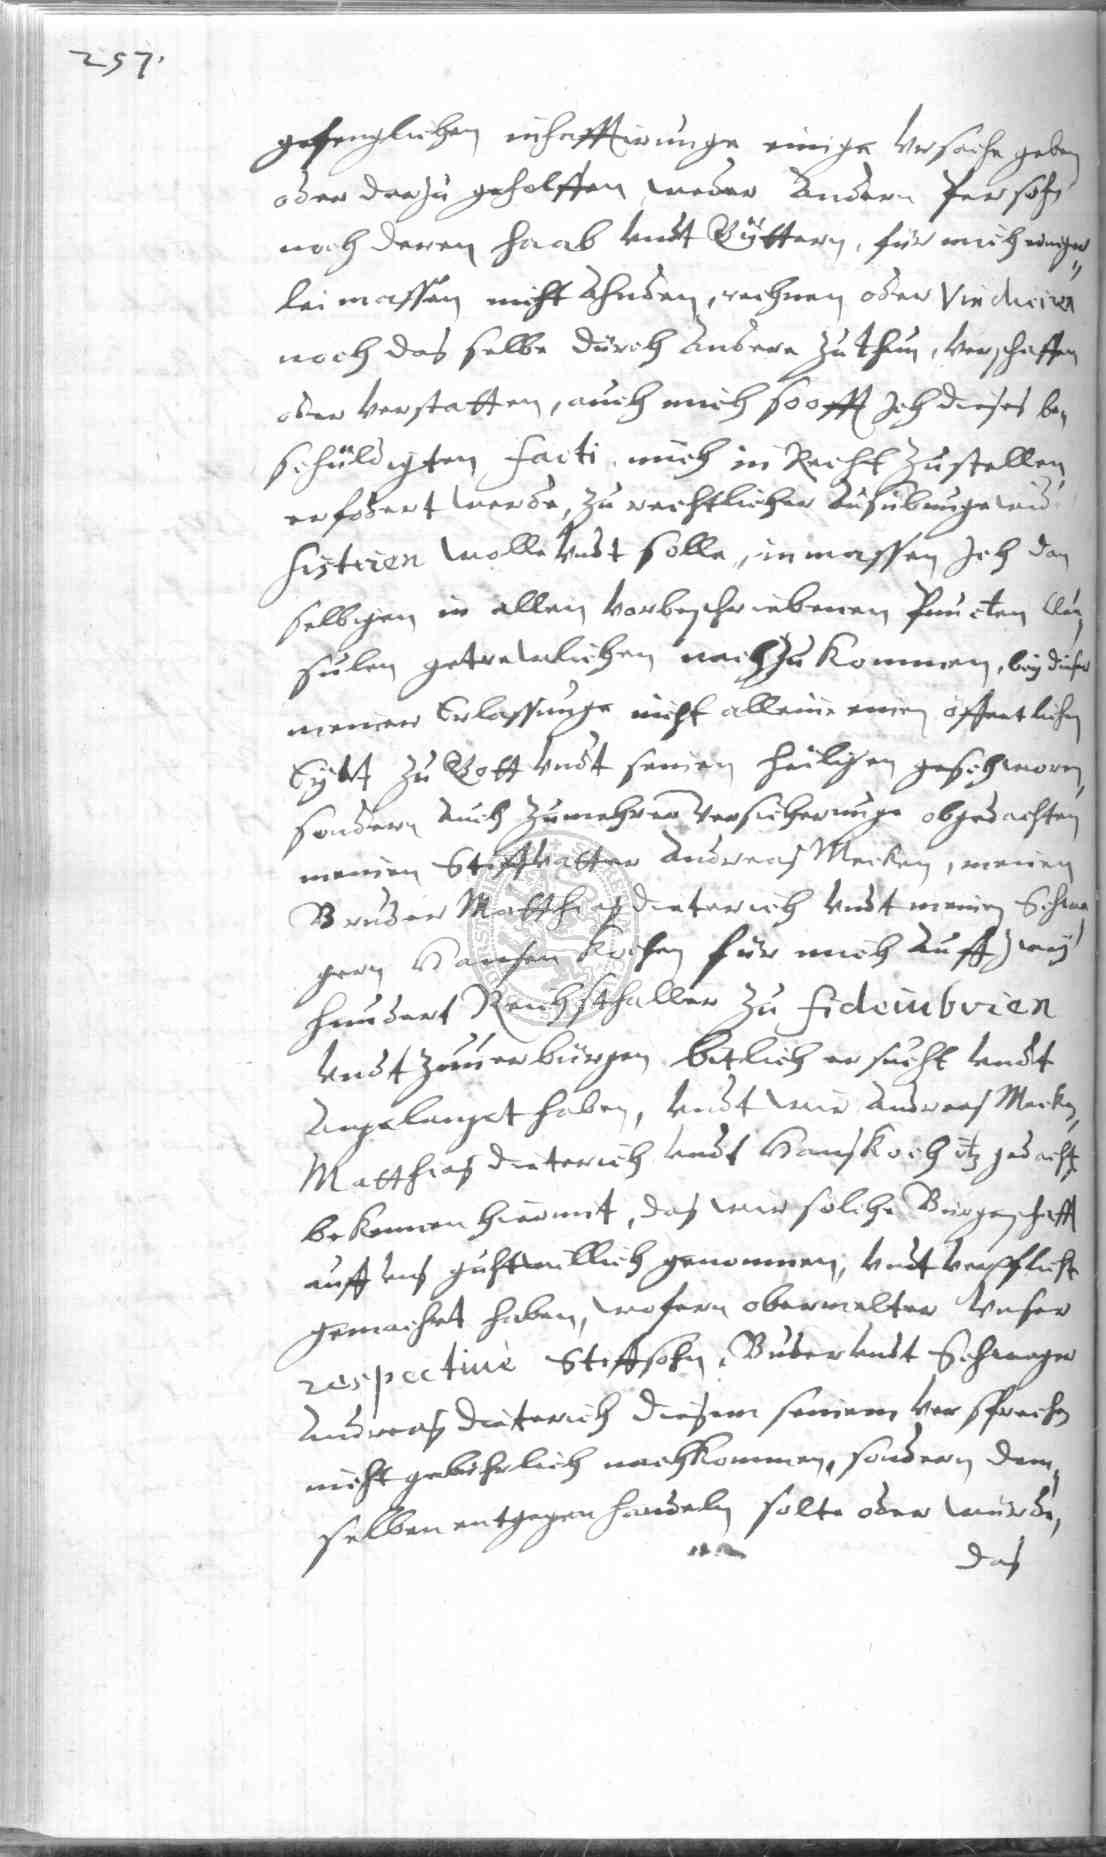 257.
gefenglichen inhafftirunge einige Vrsache geben
oder darzu geholffen, weder Andern Persohn
noch deren haab vndt Güttern, für mich einiger„
lei massen nicht Ahnden, rechnen oder Vindiciren
noch das selbe dürch Andere zu thun, verschaffen
oder verstatten, auch mich so offt Ich dieses be„
schüldigten facti mich in Recht zustellen
erfodert werde, zu rechtlicher Ausübunge
sistiren wolle vndt solle, in massen Ich dan
selbigen in allen vorbeschriebenen Puncten Clau„
sulen getrewlichen nachzukommen, bey dieser
meiner Erlassunge nicht alleine einen öffentlichen
Eydt zu Gott vndt seinen heiligen geschworen,
sondern Auch zu mehrer Versicherunge obgedachten
meinen Stiffvatter Andreas Mecken, meinen
Bruder Matthias Dieterich vndt meinen Schwa„
gern Hansen Kochen für mich Auff zwey
hundert Reichsthaller zu fideiubiren
vndt zuuerbürgen bitlich ersucht vndt
Angelanget haben, vndt wir Andreas Mecken,
Matthias Dieterich vndt Hans Koch itz gedacht
bekennen hiermit, das wir solche Bürgeschafft
auff vns guhtwillich genommen, vndt verpflicht
gemachet haben, wofern obermelter Vnser
respectiuè Stiffsohn, Bruder vndt Schwager
Andreas Dieterich diesem seinem Versprechen
nicht gebührlich nachkommen, sondern dem„
selben entgegen handeln solte oder würde,
das